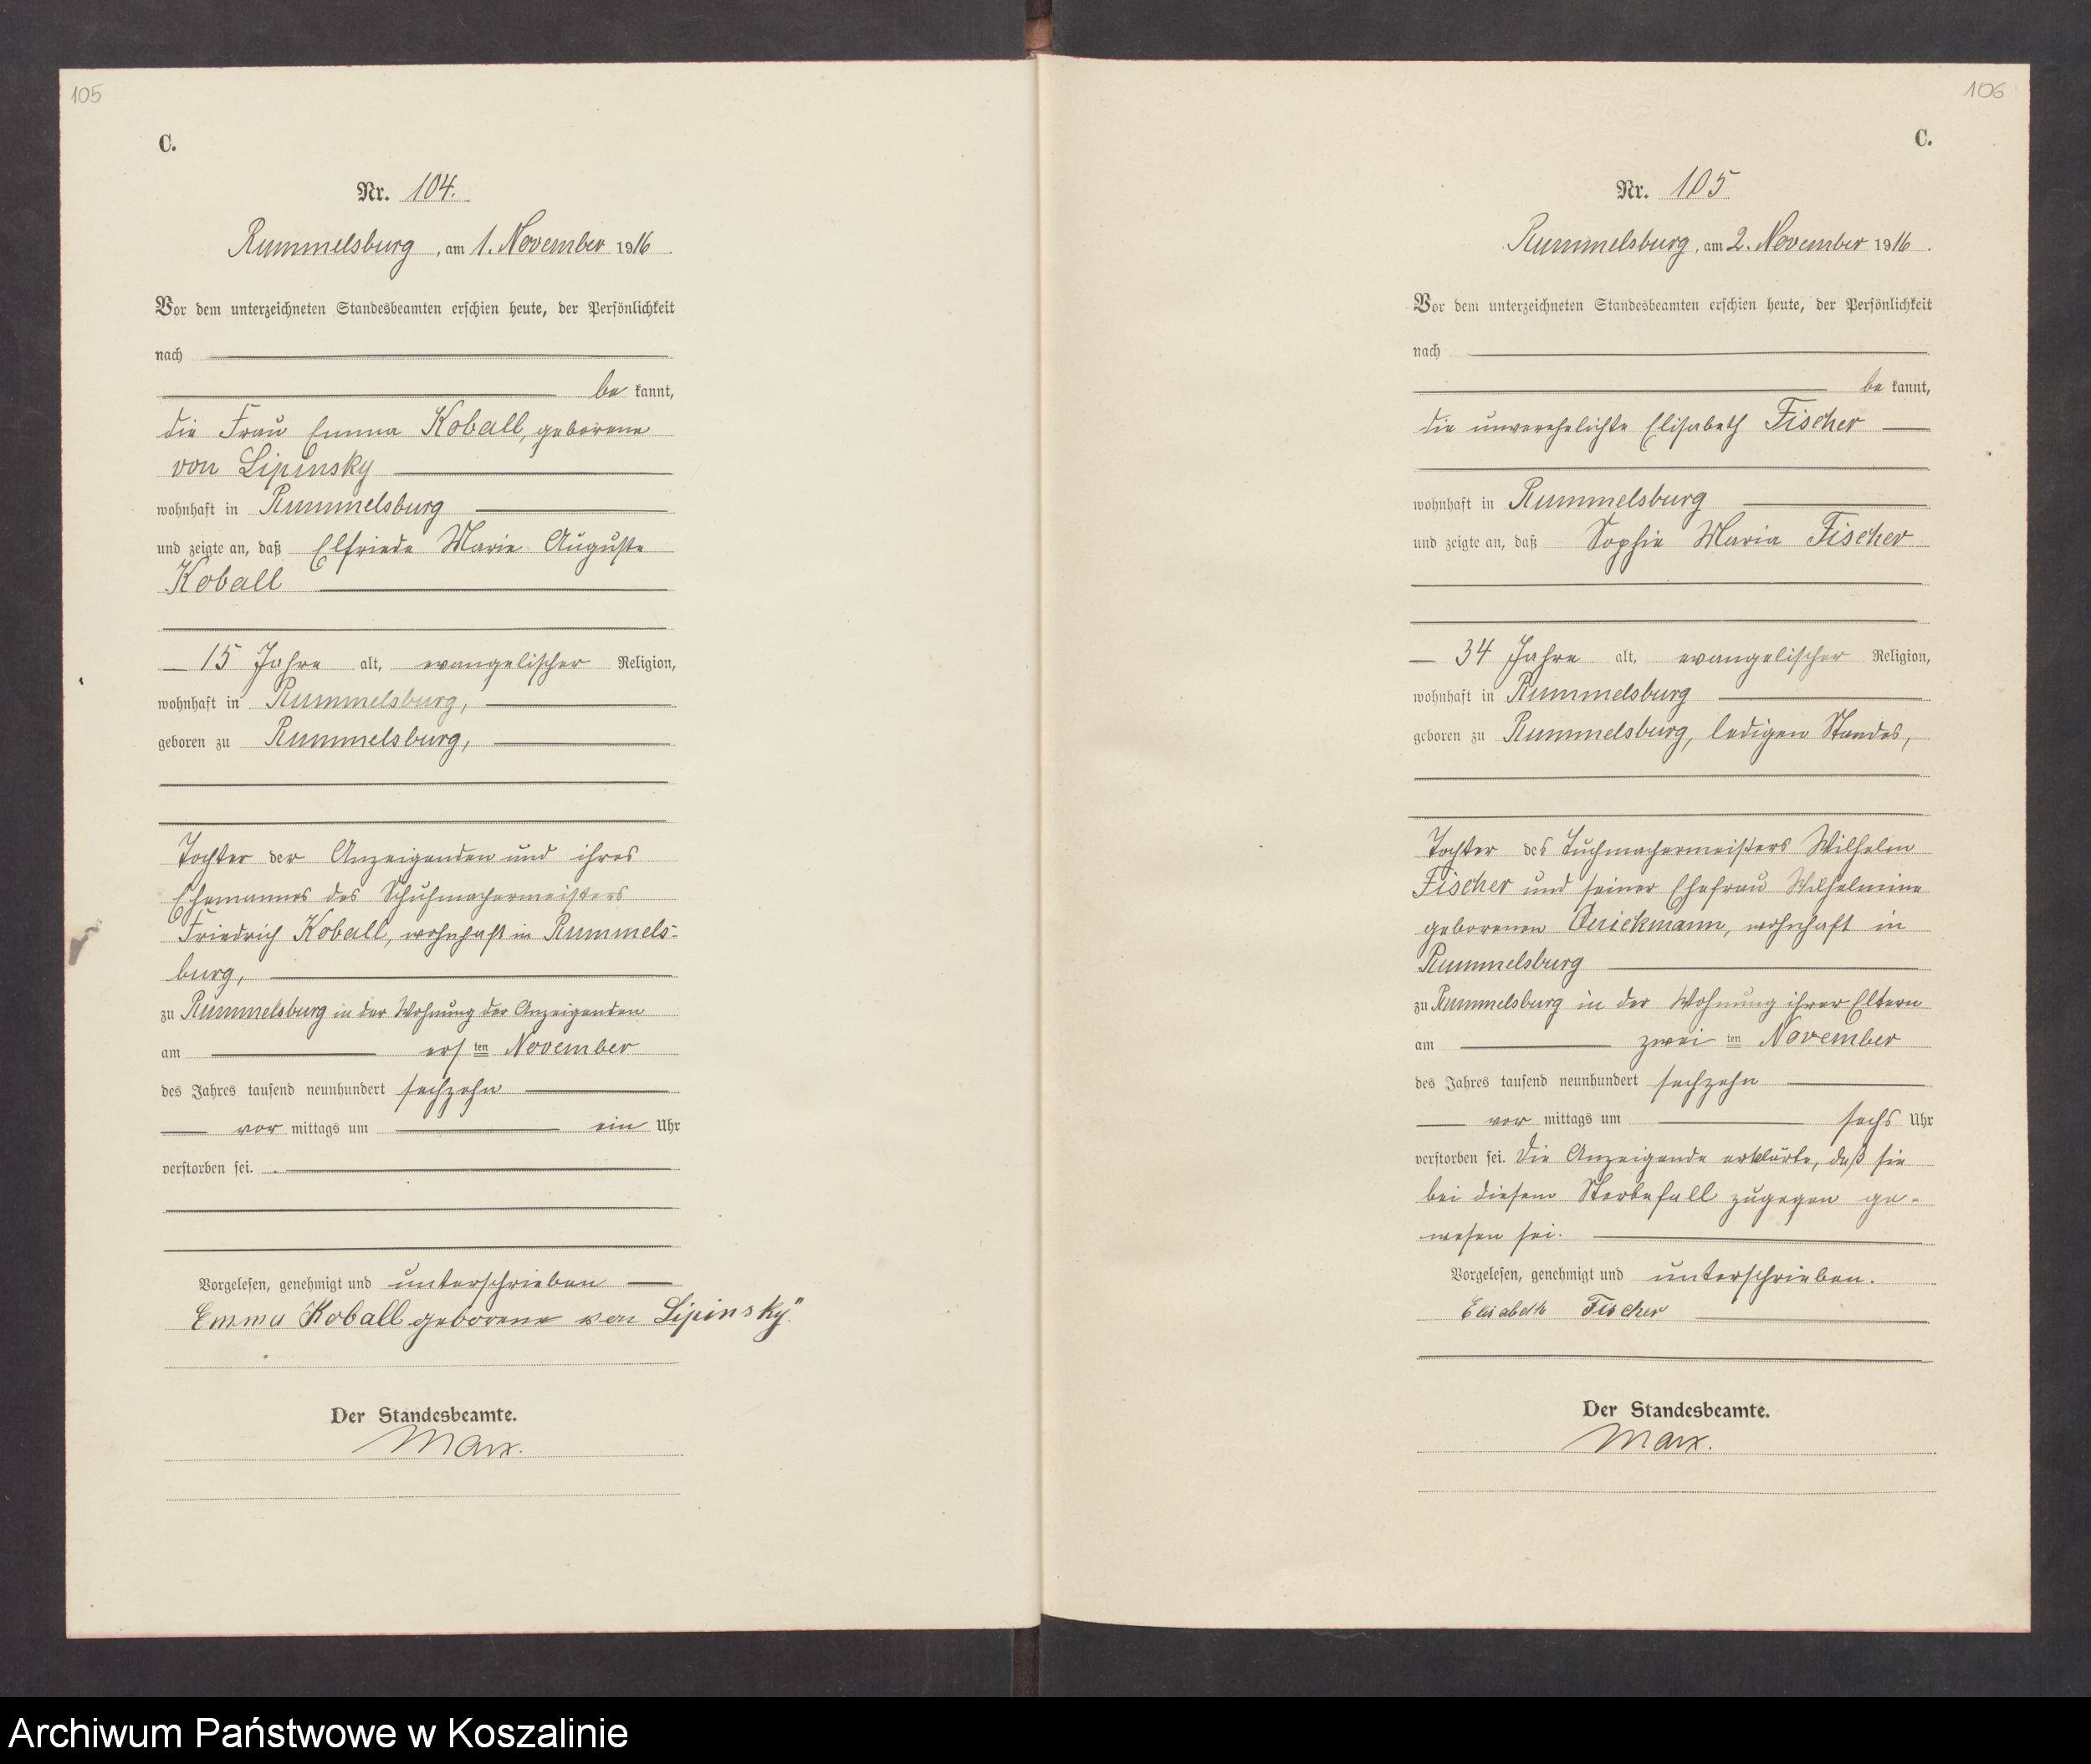 105
C.
Nr. 104.
Rummelsburg, am 1. November 1916.
Vor dem unterzeichneten Standesbeamten erschien heute, der Persönlichkeit
nach
be kannt,
die Frau Emma Koball, geborene
von Lipinsky
wohnhaft in Rummelsburg
und zeigte an, daß Elfriede Marie Auguste
Koball
15 Jahre alt, evangelischer Religion,
wohnhaft in Rummelsburg,
geboren zu Rummelsburg,
Tochter der Anzeigenden und ihres
Ehemannes des Schuhmachermeisters
Friedrich Koball, wohnhaft in Rummels-
burg,
zu Rummelsburg in der Wohnung der Anzeigenden
am ersten November
des Jahres tausend neunhundert sechzehn
vor mittags um ein Uhr
verstorben sei.
Vorgelesen, genehmigt und unterschrieben
Emma Koball geborene von Lipinsky.
Der Standesbeamte.
Marx.
106
C.
Nr. 105
Rummelsburg, am 2. November 1916.
Vor dem unterzeichneten Standesbeamten erschien heute, der Persönlichkeit
nach
be kannt,
die unverehelichte Elisabeth Fischer
wohnhaft in Rummelsburg
und zeigte an, daß Sophie Maria Fischer
34 Jahre alt, evangelischer Religion,
wohnhaft in Rummelsburg
geboren zu Rummelsburg, ledigen Standes,
Tochter des Tuchmachermeisters Wilhelm
Fischer und seiner Ehefrau Wilhelmine
geborenen wohnhaft in
Rummelsburg
zu Rummelsburg in der Wohnung ihrer Eltern
am zweiten November
des Jahres tausend neunhundert sechzehn
vor mittags um sechs Uhr
verstorben sei. Die Anzeigende erklärte, daß sie
bei diesem Sterbefall zugegen ge-
wesen sei.
Vorgelesen, genehmigt und unterschrieben.
Elisabeth Fischer
Der Standesbeamte.
Marx.
Archiwum Państwowe w Koszalinie